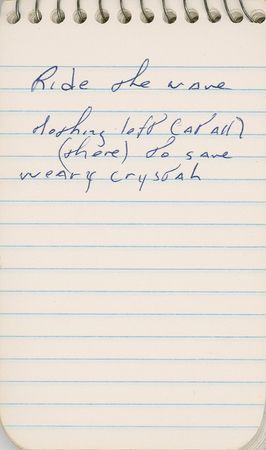 Ride the wave
Nothing left (at all)
(there) to save
weary crystal